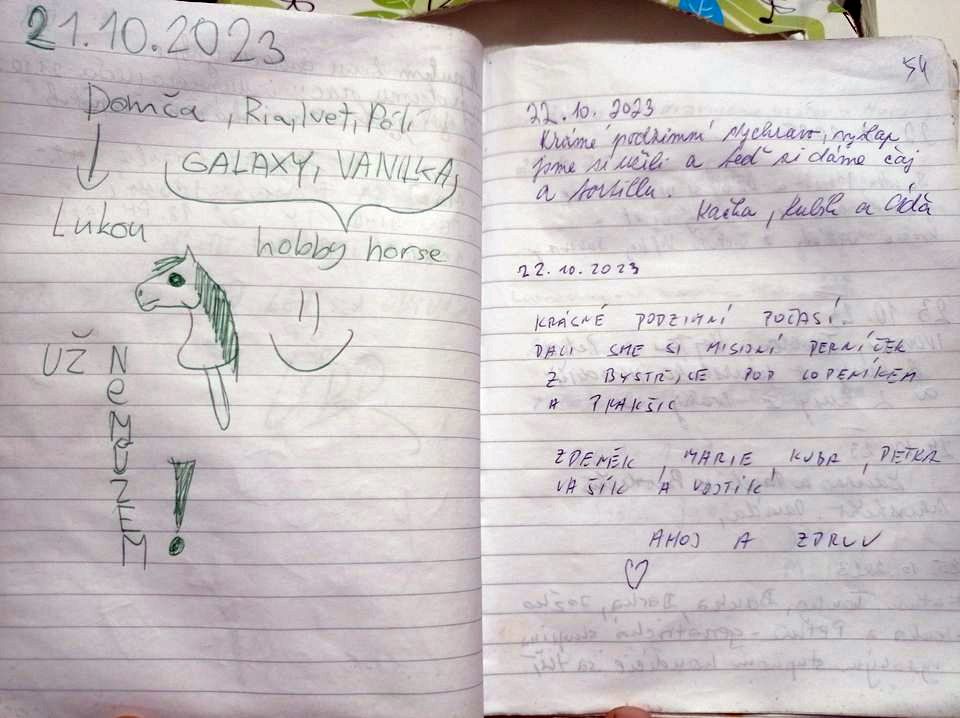 21.10.2023
Domča, Ria, Ivet, Póli,
GALAXY, VANILKA,
Lukov
hobby horse
UŽ NEMŮŽEM!
54
22.10.2023
Krásné podzimní, výšlap
jsme si užili a teď si dáme čaj
a
Kačka, a
22.10.2023
KRÁSNÉ PODZIMNÍ POČASÍ.
DALI SME SI MISIONÍ PERNÍČEK
Z BYSTŘICE POD LOPENÍKEM
A PRAKŠIC
ZDENĚK, MARIE, KUBA, PETRA
VAŠÍK A VOJTÍK
AHOJ A ZDRUV